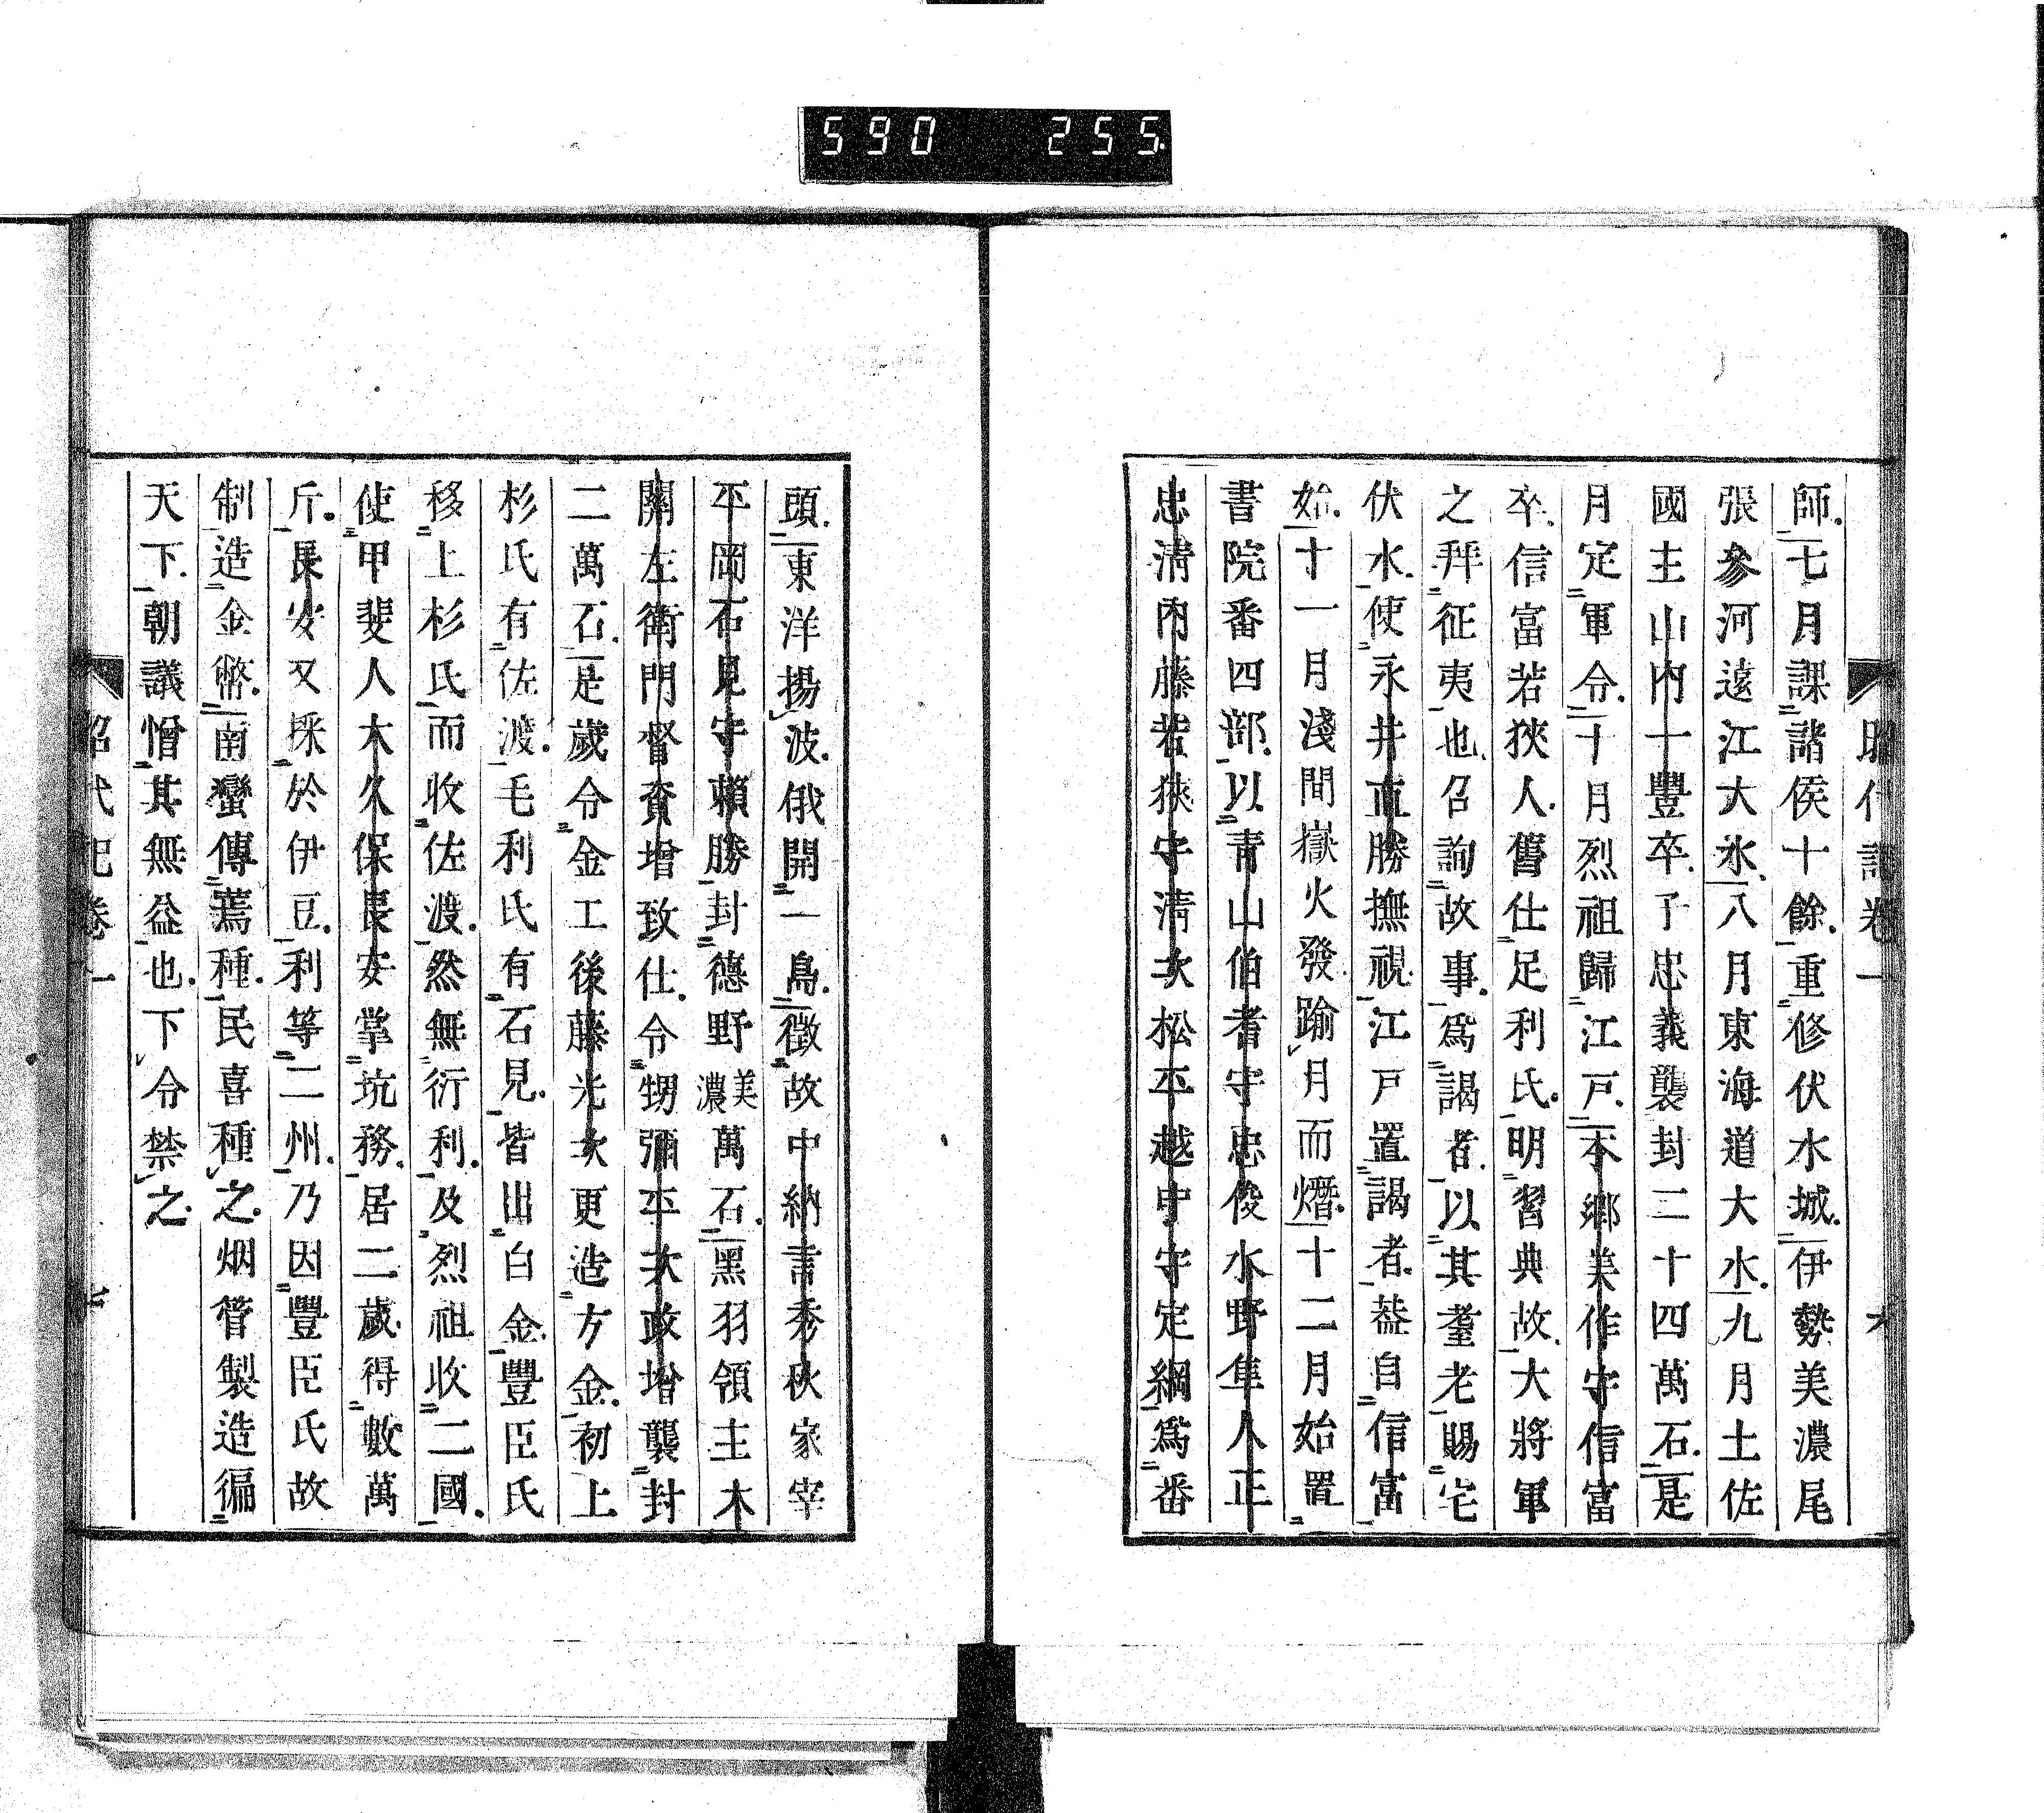 590 255
昭代記卷一
師七月課諸侯十餘重修伏水城伊勢美濃尾
張參河遠江大氷八月東海道大水九月土佐
國主山內一豐卒子忠義襲封二十四萬石是
月定軍令十月烈祖歸江戸本郷美作守信富
卒信富若狹人舊仕足利氏明習典故大將軍
之拜征夷也召詢故事爲謁者以其耋老賜宅
伏水使永井直勝撫視江戸置謁者葢自信富
始十一月淺間嶽火發踰月而熸十二月始置
書院番四部以青山伯耆守忠俊水野隼人正
忠淸內藤若狹守淸次松平越中守定綱爲番
頭東洋揚波俄開一島徵故中納言秀秋家宰
平岡石見守賴勝封德野美濃萬石黑羽領主木
關左衛門督賚增致仕令甥彌平次政增襲封
二萬石是歲令金工後藤光次更造方金初上
杉氏有佐渡毛利氏有石見皆出白金豐臣氏
移上杉氏而收佐渡然無衍利及烈祖收二國
使甲斐人大久保長安掌坑務居二歲得數萬
斤長安又採於伊豆利等二州乃因豐臣氏故
制造金幣南蠻傳蔫種民喜種之烟管製造徧
天下朝議憎其無益也下令禁之
昭代記卷一